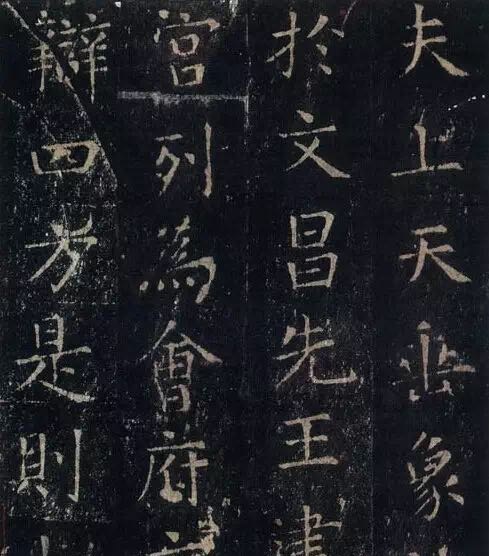 夫上天垂象
於文昌先王建
宮列為會府
辯四方是則